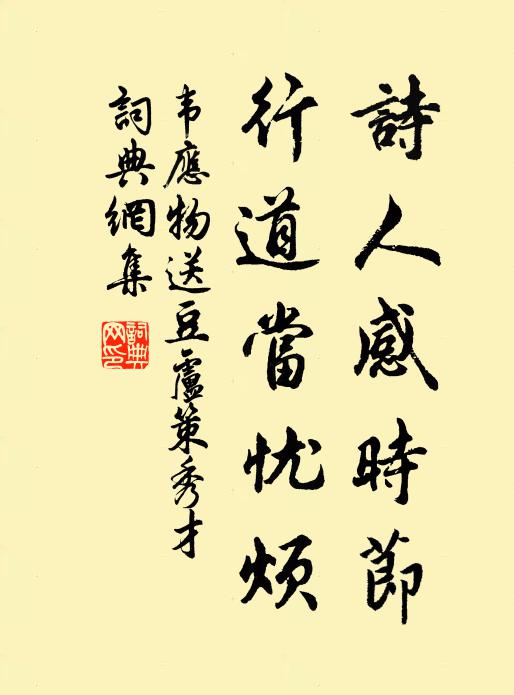 詩人感時節
行道當忧煩
韦應物送豆盧策秀才
詞典網集
詞典网印